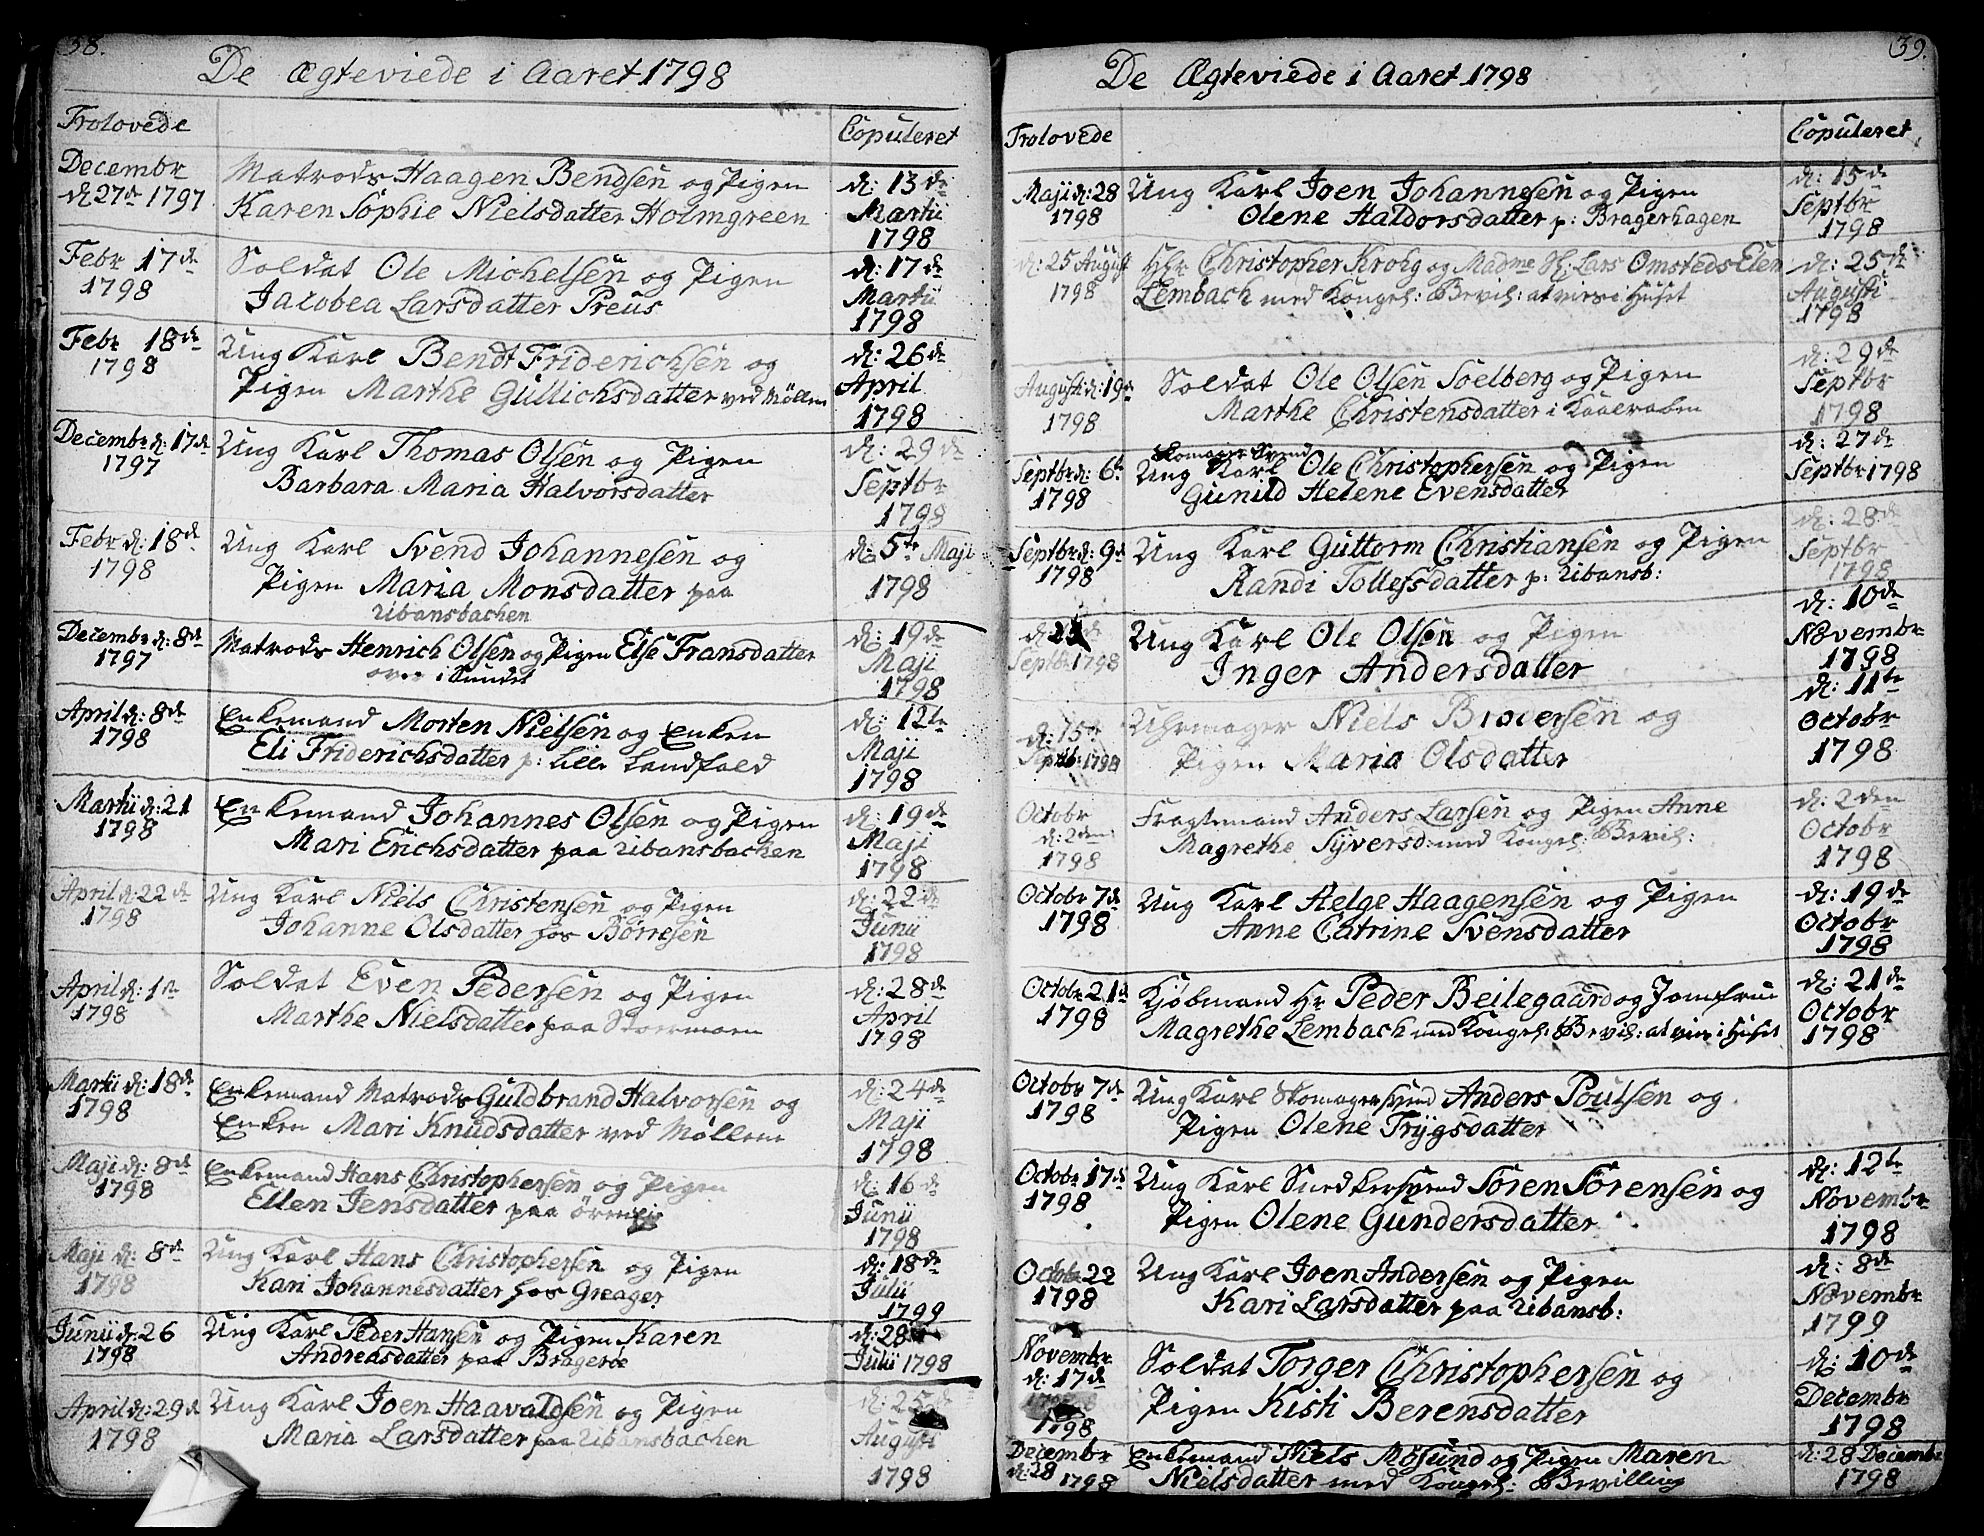 38.
De Ægteviede i Aaret 1798
Trolovede
Copuleret
Decembr
d: 27de 1797
Matrods Haagen Bendsen og Pigen
Karen Sophie Nielsdatter Holmgreen
d: 13de
Martii
1798
Febr 17de
1798
Soldat Ole Michelsen og Pigen
Jacobea Larsdatter Preus
d: 17de
Martii
1798
Febr 18de
1798
Ung Karl Bendt Friderichsen og
Pigen Marthe Gullichsdatter ved Møllen
d: 26de
April
1798
Decembr d: 17de
1797
Ung Karl Thomas Olsen og Pigen
Barbara Maria Halvorsdatter
d: 29de
Septbr
1798
Febr d: 18de
1798
Ung Karl Svend Johannesen og
Pigen Maria Monsdatter paa
Ubansbachen
d: 5te Maji
1798
Decembr d: 8de
1797
Matrods Henrich Olsen og Pigen Else Fransdatter
over i Sundet
d: 19de
Maji
1798
April d: 8de
1798
Enkemand Morten Nielsen og Enken
Eli Friderichsdatter p: Lille Landfald
d: 12te
Maji
1798
Martii d: 21
1798
Enkemand Johannes Olsen og Pigen
Mari Erichsdatter paa Ubansbachen
d: 19de
Maji
1798
April d: 22de
1798
Ung Karl Niels Christensen og Pigen
Johanne Olsdatter hos Börresen
d: 22de
Junii
1798
April d: 1te
1798
Soldat Even Pedersen og Pigen
Marthe Nielsdatter paa Stormoen
d: 28de
April
1798
Martii d: 18de
1798
Enkemand Matrods Guldbrand Halvorsen og
Enken Mari Knudsdatter ved Møllene
d: 24de
Maji
1798
Maji d: 8de
1798
Enkemand Hans Christophersen og Pigen
Ellen Jensdatter paa
d: 16de
Junii
1798
Maji d: 8de
1798
Ung Karl Hans Christophersen og Pigen
Kari Johannesdatter hos Greager
d: 18de
Julii
1799
Junii d: 26
1798
Ung Karl Peder Hansen og Pigen Karen
Andreasdatter paa Bragerøe
d: 28
Julii 1798
April d: 29de
1798
Ung Karl Joen Haavaldsen og Pigen
Maria Larsdatter paa Ubansbachen
d: 25de
Augusti
1798
39.
De Ægteviede i Aaret 1798
Trolovede
Copuleret
Maji d: 28
1798
Ung Karl Joen Johannesen og Pigen
Olene Haldorsdatter p: Bragerhagen
d: 15de
Septbr
1798
d: 25 August
1798
Hr Christopher Krohg og Madme Sl: Lars Omsteds Elen
Lembach med Kongel: Bevil: at vies i Huset
d: 25de
Augusti
1798
Augusti d: 19de
1798
Soldat Ole Olsen Soelberg og Pigen
Marthe Christensdatter i Kaalraben
d: 29de
Septbr
1798
Septbr d: 6te
1798
Skomager Svend
Ung Karl Ole Christophersen og Pigen
Gunild Helene Evensdatter
d: 27de
Septbr 1798
Septbr d: 9de
1798
Ung Karl Guttorm Christiansen og Pigen
Randi Tollefsdatter p: Ubansb:
d: 28de
Septbr
1798
Septbr 1798
Ung Karl Ole Olsen og Pigen
Inger Andersdatter
d: 10de
Novembr
1798
d: 15de
Septb: 1798
Uhrmager Niels Brodersen og
Pigen Maria Olsdatter
d: 11te
Octobr
1798
Octobr
d: 2den
1798
Fragtemand Anders Larsen og Pigen Anne
Magrethe Syversd: med Kongel: Bevil:
d: 2den
Octobr
1798
Octobr 7de
1798
Ung Karl Helge Haagensen og Pigen
Anne Catrine Svensdatter
d: 19de
Octobr
1798
Octobr 21de
1798
Kjøbmand Hr Peder Beilegaard og Jomfrue
Magrethe Lembach med Kongel: Bevil: at vies i Huset
d: 21de
Octobr
1798
Octobr 7de
1798
Ung Karl Skomagersvend Anders Poulsen og
Pigen Olene Trygsdatter
Octobr 17de
1798
Ung Karl Snedkersvend Sören Sörensen og
Pigen Olene Gundersdatter
d: 12te
Novembr
1798
Octobr 22
1798
Ung Karl Joen Andersen og Pigen
Kari Larsdatter paa Ubansb:
d: 8de
Novembr
1799
Novembr
d: 17de
1798
Soldat Torger Christophersen og
Pigen Kisti Berensdatter
d: 10de
Decembr
1798
Decembr
d: 28 1798
Enkemand Niels Mosund og Pigen Maren
Nielsdatter med Kongel: Bevilling
d: 28 Decembr
1798